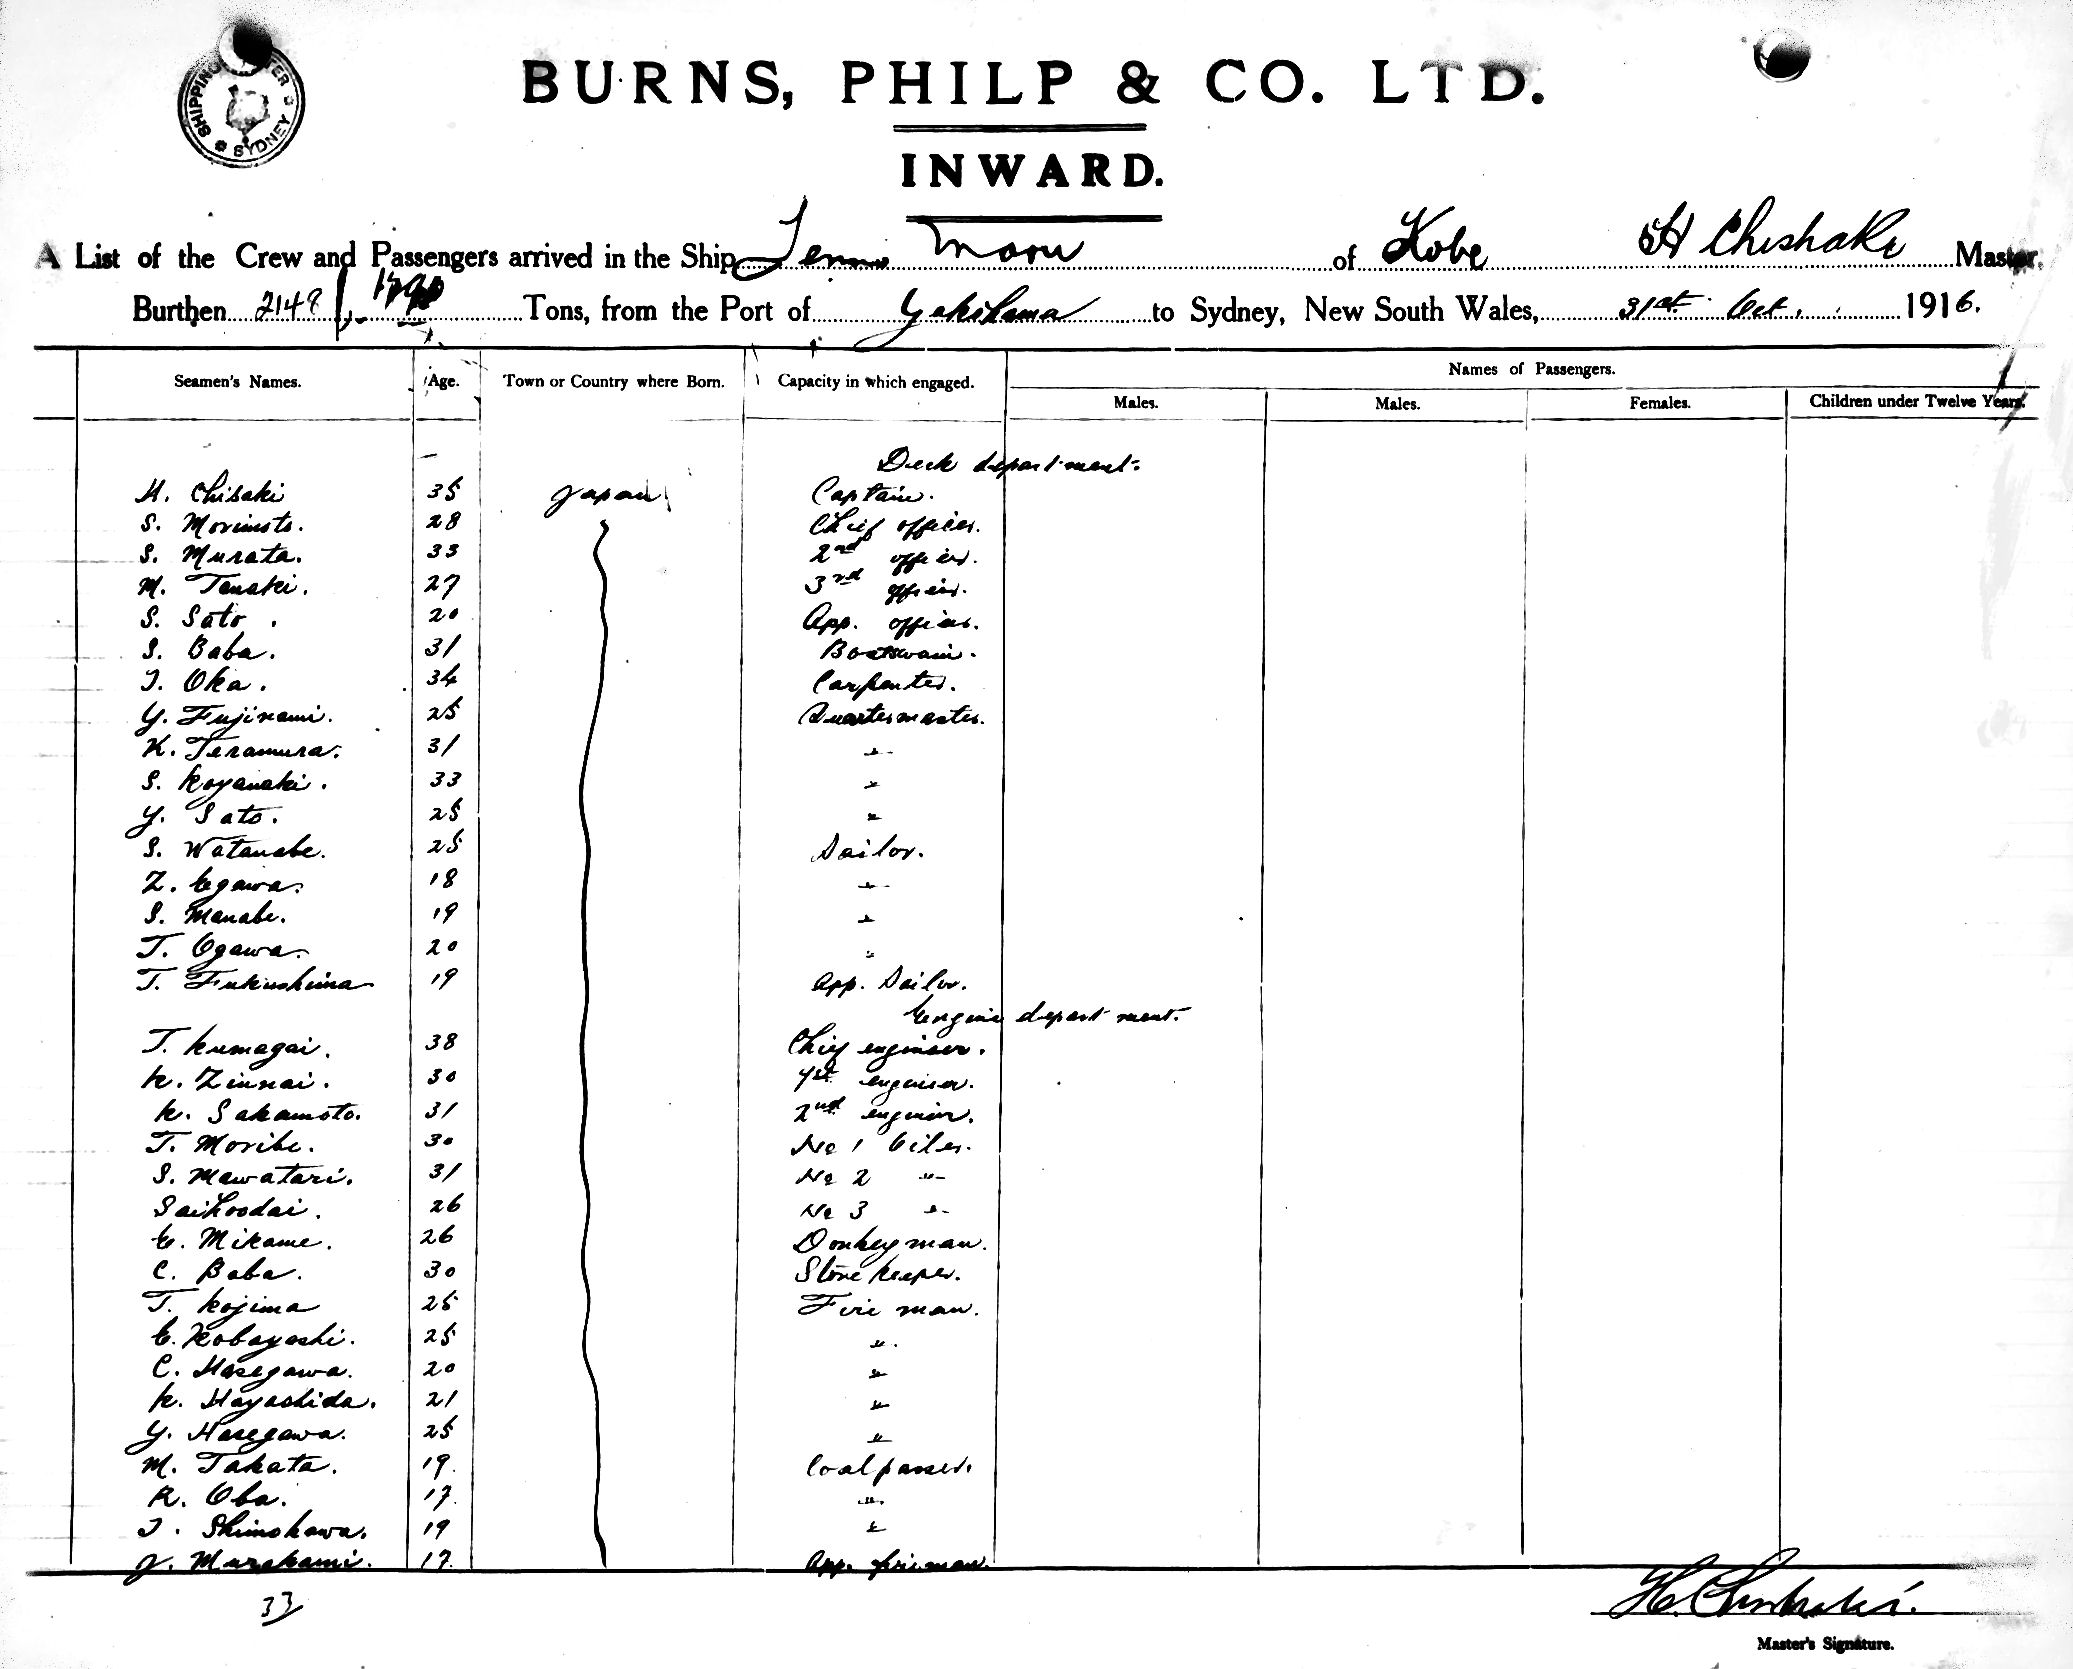 SHIPPING MASTER SYDNEY
BURNS, PHILP & CO. LTD.
INWARD.
A List of the Crew and Passengers arrived in the Ship Tenno Maru of Kobe H Chishaki Master,
Burthen 2148 Tons, from the Port of Yokohama to Sydney, New South Wales, 31st Oct. 1916.
Names of Passengers.
Seamen's Names. Age. Town or Country where Born. Capacity in which engaged.
Males. Males. Females. Children under Twelve Years.
Deck department.
H. Chisaki 35 Japan Captain.
S. Morimoto. 28 Chief officer.
S. Murata. 33 2nd officer.
M. Tanaki. 27 3rd officer.
S. Sato. 20 App. officer.
S. Baba. 31 Boatswain.
I. Oka. 34 Carpenter.
Y. Fujinami. 25 Quartermaster.
K. Teramura. 31 "
S. Koyanaki. 33 "
Y. Sato. 25 "
S. Watanabe. 25 Sailor.
Z. Egawa. 18 "
S. Manabe. 19 "
T. Ogawa. 20 "
T. Fukushima 19 App. Sailor.
Engine department.
T. Kumagai. 38 Chief engineer.
K. Zinnai. 30 1st engineer.
K. Sakamoto. 31 2nd engineer.
T. Moribe. 30 No 1 Oiler.
S. Mawatari. 31 No 2 "
Saihoodai. 26 No 3 "
E. Mikame. 26 Donkey man.
C. Baba. 30 Store keeper.
T. Kojima 25 Fire man.
E. Kobayashi. 25 "
C. Hasegawa. 20 "
K. Hayashida. 21 "
Y. Hasegawa. 25 "
M. Takata. 19. Coal passer.
R. Oba. 17. "
I. Shimokawa. 19 "
J. Murakami. 17. App. fireman.
33
H. Chishaki.
Master's Signature.